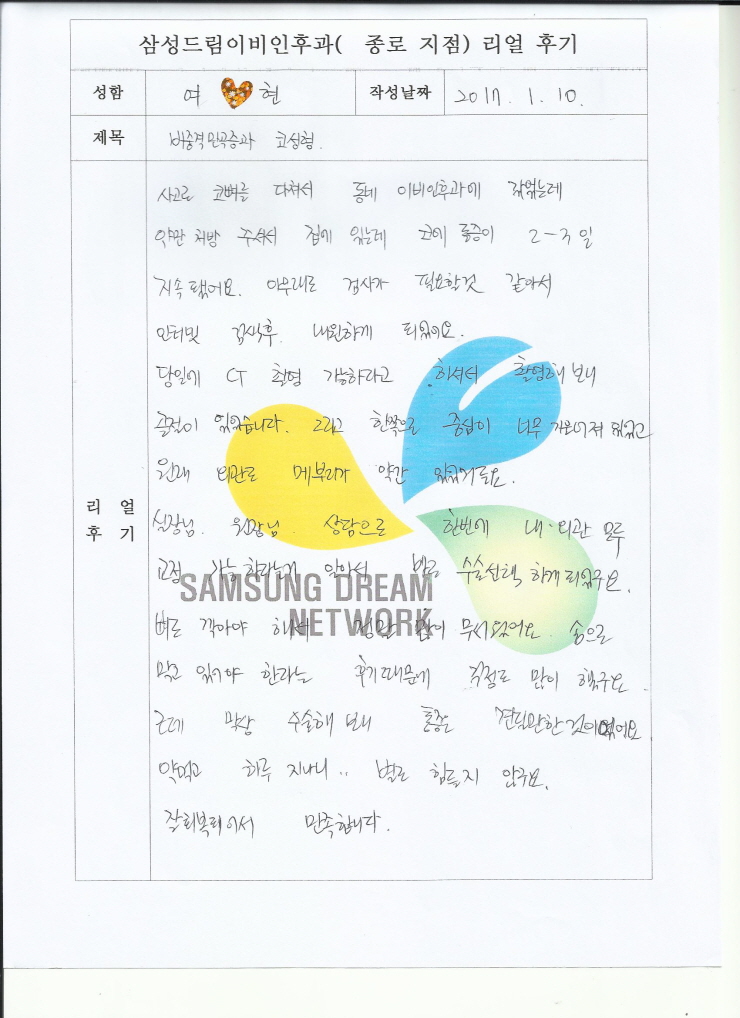 삼성드림이비인후과( 종로 지점) 리얼 후기
성함 여 현 작성날짜 2017. 1. 10.
제목 비중격만곡증과 코성형.
사고로 코뼈를 다쳐서 동네 이비인후과에 갔었는데
약만 처방 주셔서 집에 있는데 코에 통증이 2-3일
지속됐어요. 아무래도 검사가 필요할것 같아서
인터넷 검색후. 내원하게 되었어요.
당일에 CT 촬영 가능하라고 하셔서 촬영해 보니
골절이 있었습니다. 그리고 한쪽으로 중심이 너무 되있고
원래 외관도 메부리가 약간 있었거든요.
리얼 후기
실장님. 원장님. 상담으로 한번에 내·외관 모두
교정 가능하다는게 알아서 바로 수술선택 하게되었구요.
SAMSUNG DREAM
NETWORK
뼈도 깍아야 해서 정말 많이 무서웠어요. 숨으로
먹고 있어야 한다는 후기때문에 걱정도 많이 했구요.
근데 막상 수술해 보니 통증은 견디만한것이였어요
약먹고 하루 지나니.. 별로 힘들지 않구요.
잘회복되어서 만족합니다.